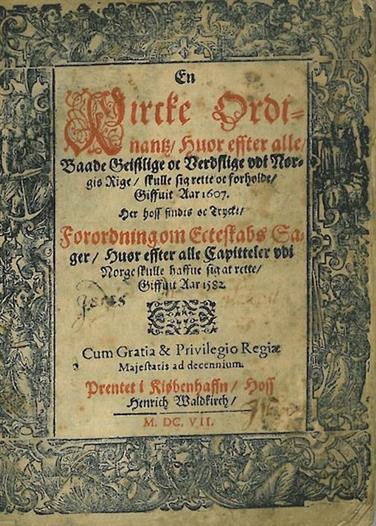 En
Kircke Ordi-
nantz/ Huor effter alle/
Baade Geistlige oc Verdslige vdi Nor-
gis Rige/ skulle sig rette oc forholde/
Giffuit Aar 1607.
Her hoss findis oc Tryckt/
Forordning om Ecteskabs Sa-
ger/ Huor effter alle Capitteler vdi
Norge skulle haffue sig at rette/
Giffuit Aar 1582.
Cum Gratia & Privilegio Regiæ
Majestatis ad decennium.
Prentet i Kiøbenhaffn/ Hoss
Henrich Waldkirch/
M. DC. VII.